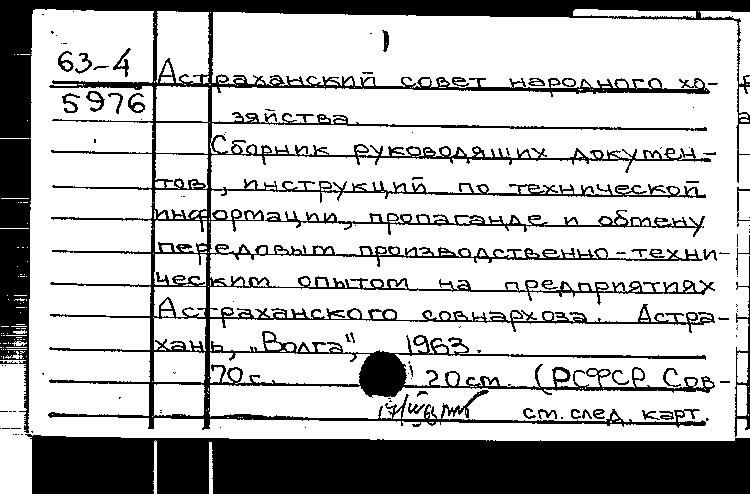 63-4
5976
Астраханский совет народного хо-
зяйства.
Сборник руководящих докумен-
тов, инструкций по технической
информации, пропаганде и обмену
передовым производственно-техни-
ческим опытом на предприятиях
Астраханского совнархоза. Астра-
хань, „Волга", 1963.
70 с. 20 см. (РСФСР. Сов-
см. след. карт.